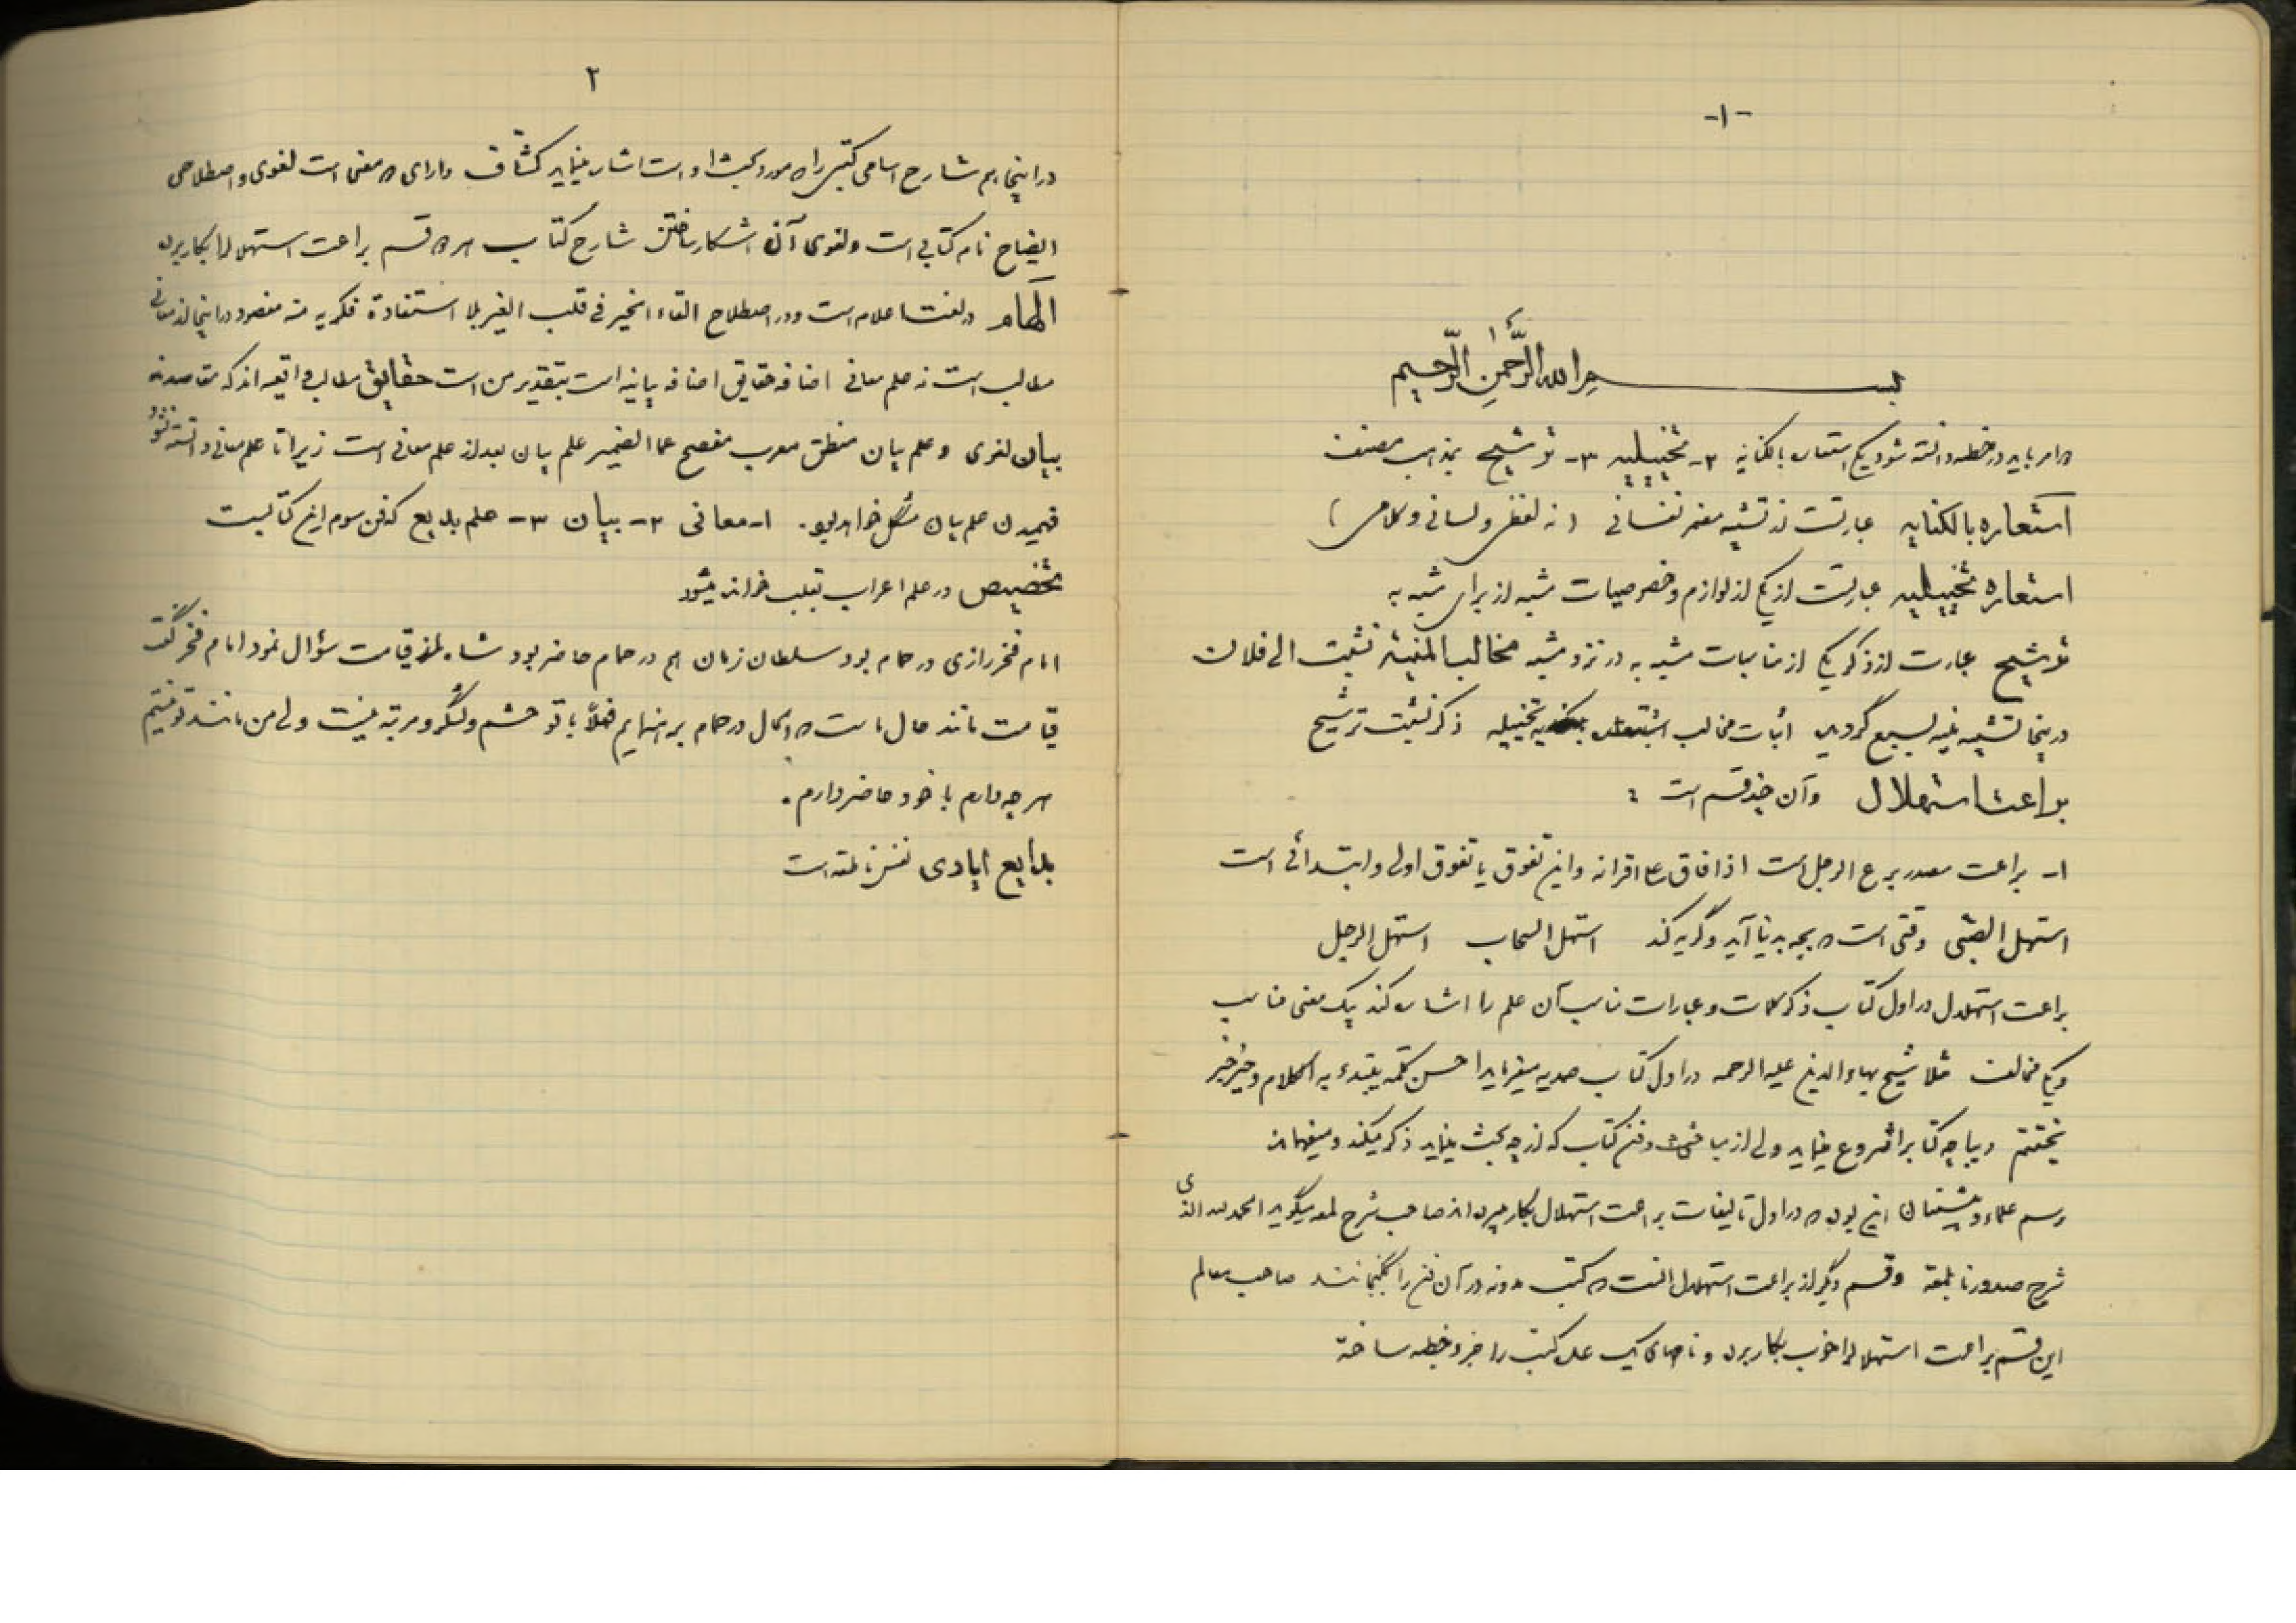 -۱-
بسم الله الرَّحمٰنِ الرَّحیم
امر باید در خطبه دانسته شود یکی استعاره بالکنایه ۲- تخییلیه ۳- ترشیح بمذهب مصنف
استعاره بالکنایه عبارتست از تشبیه مضمر نفسانی (نه لفظی و لسانی و کلامی)
استعاره تخییلیه عبارتست از یکی از لوازم و خصوصیات مشبه از برای مشبه به
ترشیح عبارت از ذکر یکی از مناسبات مشبه به در نزد مشبه مخالب المنیة نشبت الی فلان
در اینجا تشبیه منیه بسبع گردیده اثبات مخالب تخییلیه ذکر نشبت ترشیح
براعت استهلال و آن چند قسم است :
۱- براعت مصدر برع الرجل است اذا فاق علی اقرانه و این تفوق یا تفوق اولی و ابتدائی است
استهل الصبی وقتی است که بچه بدنیا آید و گریه کند استهل السحاب استهل الرجل
براعت استهلال در اول کتاب ذکر کلمات و عبارات مناسب آن علم را اشاره کند یک معنی مناسب
و یکی مخالف مثلا شیخ بهاء الدین علیه الرحمه در اول کتاب صمدیه میفرماید احسن کلمة یبتدء به الکلام و خیر خبر
یختتم دیباچه کتابرا شروع مینماید ولی از مباحث و فن کتاب که از چه بحث مینماید ذکر میکند و میفهماند
رسم علماء و پیشینیان این بوده که در اول تالیفات براعت استهلال بکار میبرده اند صاحب شرح لمعه میگوید الحمد لله الذی
شرح صدورنا بلمعة و قسم دیگر از براعت استهلال آنست که کتب مدونه در آن فن را بگنجانند صاحب معالم
این قسم براعت استهلال را خوب بکار برده و نامهای یک عده کتب را جزو خطبه ساخته
۲
در اینجا هم شارح اسامی کتبی را که مورد بحث او است اشاره مینماید کشاف دارای دو معنی است لغوی و اصطلاحی
ایضاح نام کتابی است و لغوی آن اشکار ساختن شارح کتاب هر دو قسم براعت استهلال را بکار برده
الهام در لغت اعلام است و در اصطلاح القاء الخیر فی قلب الغیر بلا استفادة فکریه منه مقصود در اینجا از معانی
مطالب است نه علم معانی اضافه حقایق اضافه بیانیه است بتقدیر من است حقایق مطالب واقعیه اند که مقاصدند
بیان لغوی و علم بیان منطق معرب مفصح عما الضمیر علم بیان بعد از علم معانی است زیرا تا علم معانی دانسته نشود
فهمیدن علم بیان مشکل خواهد بود. ۱- معانی ۲- بیان ۳- علم بدیع که فن سوم این کتابست
تخصیص در علم اعراب بقلب خوانده میشود
امام فخر رازی در حمام بود سلطان زمان هم در حمام حاضر بود شاه از قیامت سؤال نمود امام فخر گفت
قیامت مانند حال ماست که الحال در حمام برهنه ایم فعلاً با تو حشم و لشگر و مرتبه نیست ولی من مانند تو نیستم
هر چه دارم با خود حاضر دارم.
بدایع ایادی نفس ناطقه است